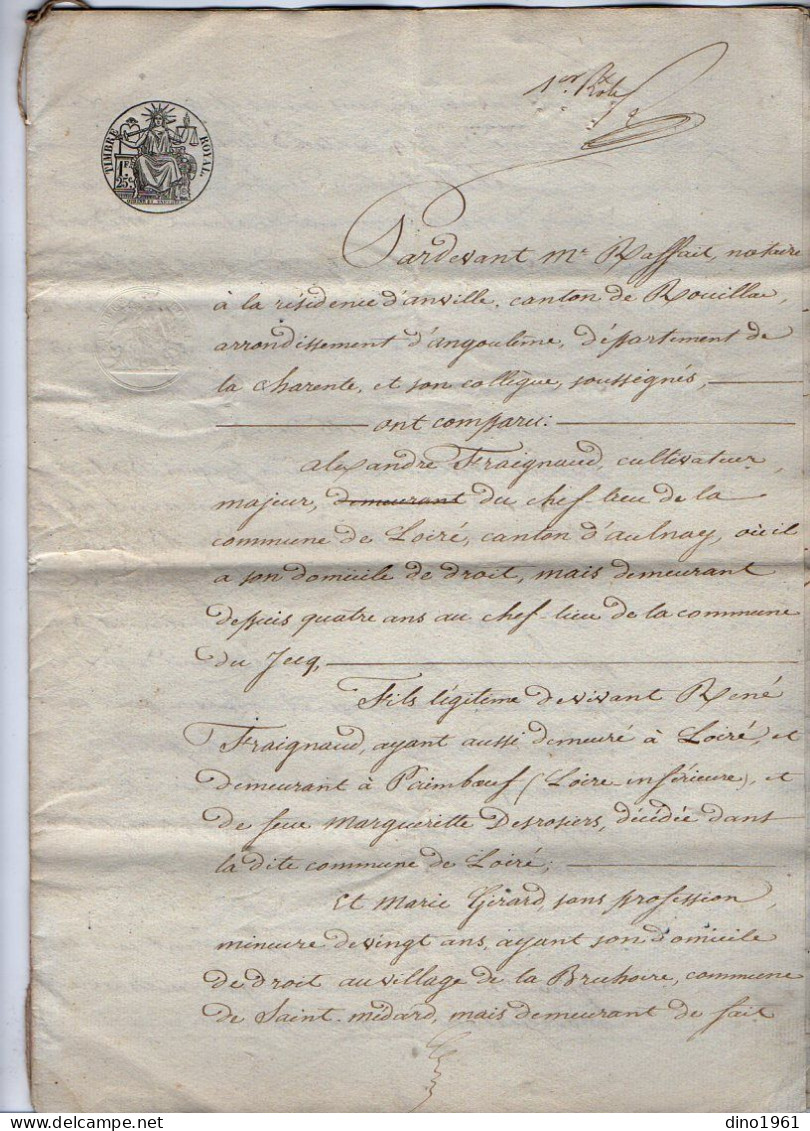 1er Rôle
TIMBRE ROYAL
1F.
25c.
Pardevant Me Raffait, notaire
à la résidence d'anville, canton de Rouillac,
arrondissement d'angoulême, département de
la charente, et son collègue, soussignés,
ont comparu:
alexandre Fraignaud, cultivateur,
majeur, demeurant du chef lieu de la
commune de Loiré, canton d'aulnay, où il
a son domicile de droit, mais demeurant
depuis quatre ans au chef-lieu de la commune
du Jecq,
Fils légitime de vivant René
Fraignaud, ayant aussi demeuré à Loiré, et
demeurant à Paimbœuf (Loire inférieure), et
de feue Margueritte Desrosiers, décédée dans
la dite commune de Loiré;
Et Marie Girard, sans profession,
mineure de vingt ans, ayant son domicile
de droit au village de la Bruhoire, commune
de Saint-médard, mais demeurant de fait
dino1961